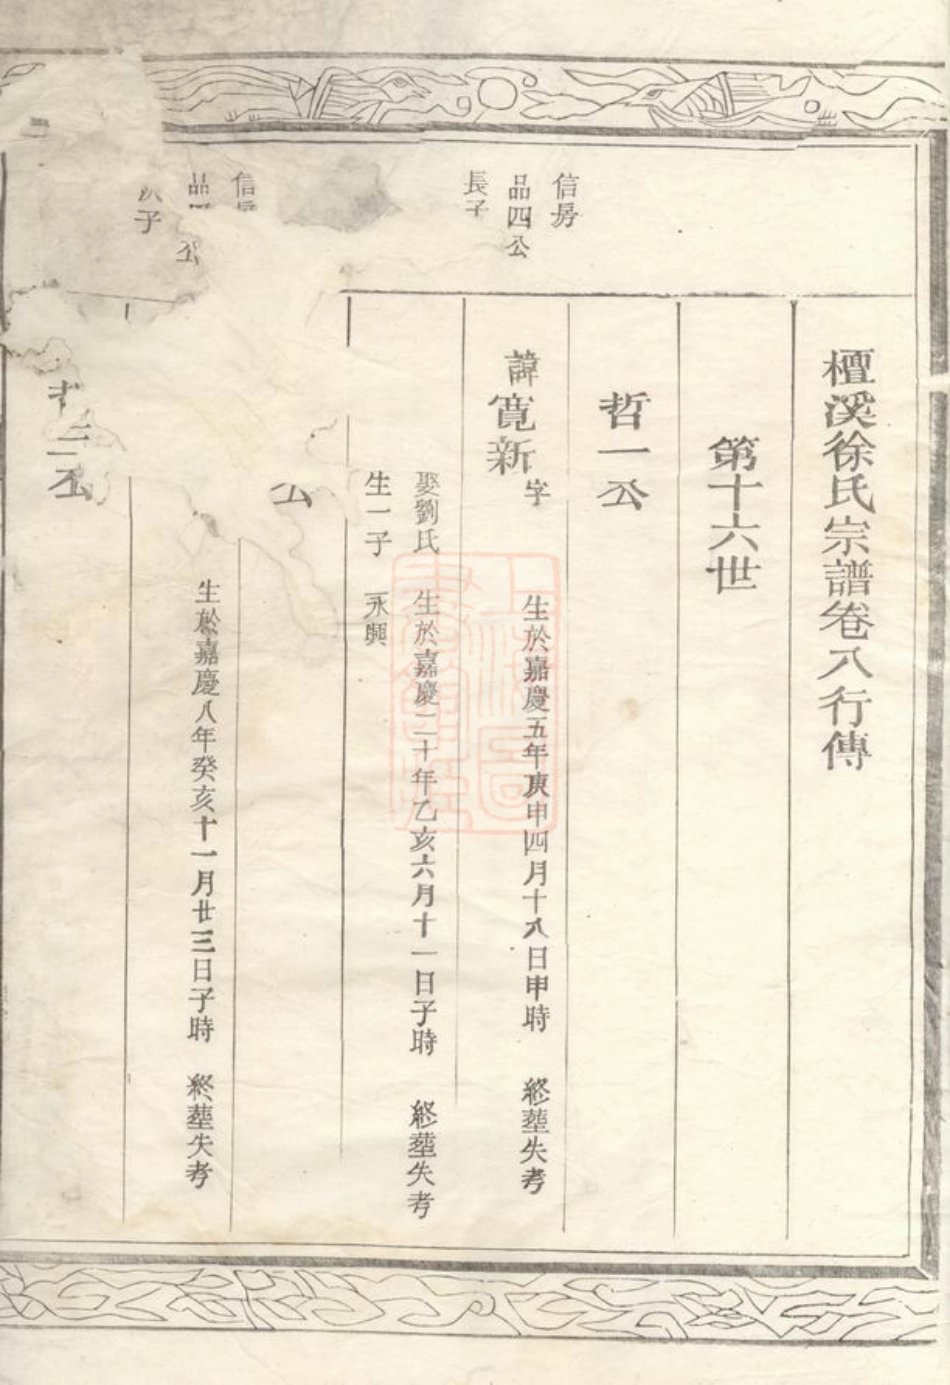 檀溪徐氏宗譜卷八行傳
第十六世
哲一公
信房
品四公
長子
諱寬新字
生於嘉慶五年庚申四月十八日申時 終塟失考
娶劉氏 生於嘉慶二十年乙亥六月十一日子時 終塟失考
生一子 永興
信房
品四公
次子
公
生於嘉慶八年癸亥十一月廿三日子時 終塟失考
三公